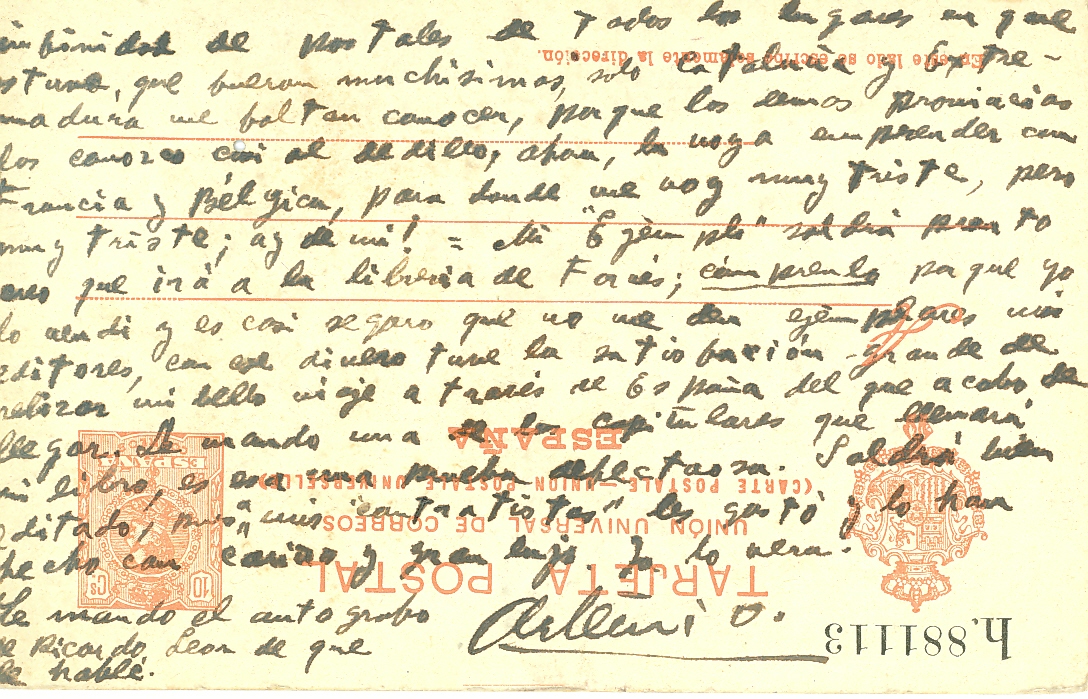 infinidad de postales de todos los lugares en que
estuve, que fueron muchisimas, solo Cataluña y Extre-
madura me faltan conocer, porque las demas provincias
las conozco casi al dedillo; ahora, la voy a emprender con
Francia y Bélgica, para donde me voy muy triste, pero
muy triste; ay de mi! = Mi "Ejemplo" saldrá pronto
creo que irá a la libreria de Forés; cómprenlo porque yo
lo vendi y es casi seguro que no me den ejemplares mis
editores, con ese dinero tuve la satisfacción grande de
relizar mi bello viaje a través de España del que acabo de
llegar. Le mando una de las capitulares que llevará
mi libro, es esa una prueba defectuosa. Saldrá bien
editado, pues "mis contratistas" les gustó y lo han
hecho con cariño y gran lujo. Ya lo vera.
Le mando el autografo
de Ricardo Leon de que
le hablé.
En este lado se escribe solamente la dirección.
ESPAÑA
(CARTE POSTALE — UNION POSTALE UNIVERSELLE)
UNIÓN UNIVERSAL DE CORREOS
TARJETA POSTAL
ESPAÑA
10 Cs
h,881113